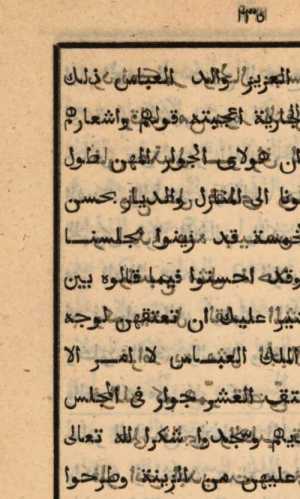 ٢٣٥
العزيز والد العباس ذلك
الجارية اعجبته قولهم واشعارهم
ان هولاى الجوار المهن لطول
ونا الى المنازل والديار بحسن
خمسة قد زينوا مجلسنا
وقد احسنوا فيما قالوه بين
نشير عليك ان تعتقهن لوجه
الملك العباس لا امر الا
تق العشر جوار فى المجلس
يهم وسجدوا شكرا لله تعالى
عليهن من الزينة وطرحوا